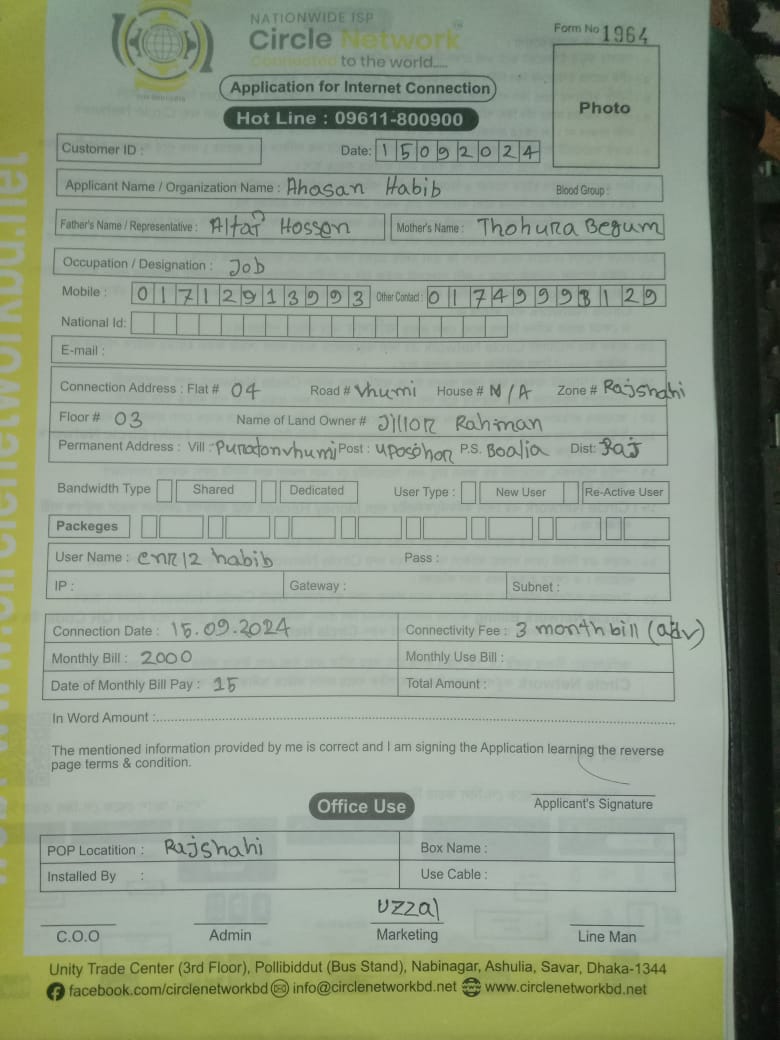 NATIONWIDE ISP
Circle Network
Connected to the world.....
Form No 1964
Application for Internet Connection
Photo
Hot Line : 09611-800900
Customer ID :
Date: 15092024
Applicant Name / Organization Name : Ahasan Habib Blood Group :
Father's Name / Representative : Altaf Hossen Mother's Name : Thohura Begum
Occupation / Designation : Job
Mobile : 01712913993 Other Contact : 01749998129
National Id:
E-mail :
Connection Address : Flat # 04 Road # Vhumi House # N/A Zone # Rajshahi
Floor # 03 Name of Land Owner # Jillor Rahman
Permanent Address : Vill : Puratonvhumi Post : uposohor P.S. Boalia Dist: Raj
Bandwidth Type Shared Dedicated User Type : New User Re-Active User
Packeges
User Name : cnr12 habib Pass :
IP : Gateway : Subnet :
Connection Date : 15.09.2024 Connectivity Fee : 3 month bill (adv)
Monthly Bill : 2000 Monthly Use Bill :
Date of Monthly Bill Pay : 15 Total Amount :
In Word Amount :
The mentioned information provided by me is correct and I am signing the Application learning the reverse
page terms & condition.
Applicant's Signature
Office Use
POP Locatition : Rajshahi Box Name :
Installed By : Use Cable :
Uzzal
C.O.O Admin Marketing Line Man
Unity Trade Center (3rd Floor), Pollibiddut (Bus Stand), Nabinagar, Ashulia, Savar, Dhaka-1344
facebook.com/circlenetworkbd info@circlenetworkbd.net www.circlenetworkbd.net